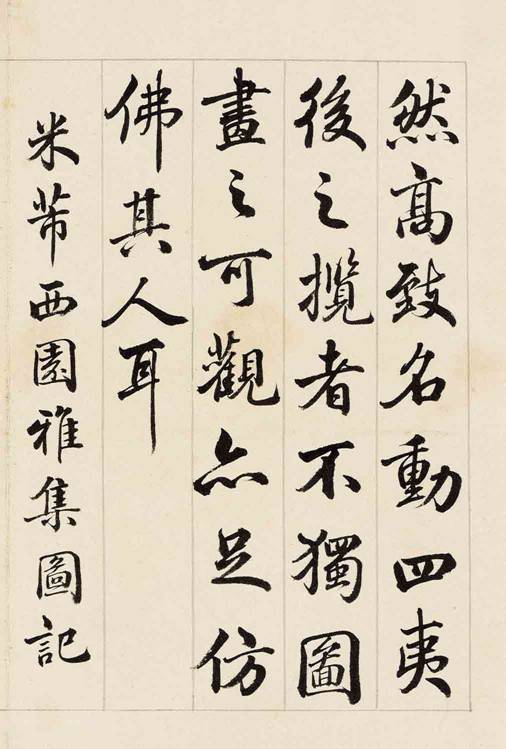 然髙致名動四夷
後之攬者不獨圖
畫之可觀亦足仿
佛其人耳
米芾西園雅集圖記